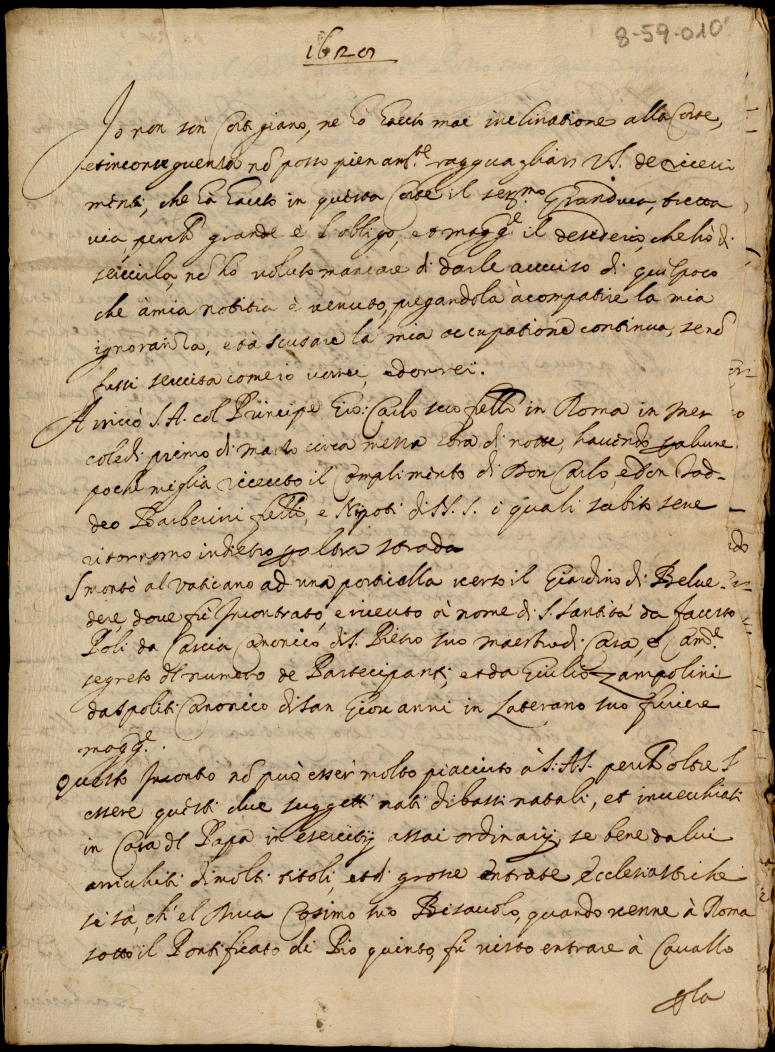 8-59-010
1628
Io non son Cortigiano, ne hò hauto mai inclinatione alla Corte,
et in conseguenza nõ posso pienam.te ragguagliar V.S. de riceui
menti, che hà hauto in questa Corte il ser.mo Granduca, tutta
uia, perche grande è l'obligo, et magg.e il desiderio, che hò di
seruirla, nõ ho voluto mancare di darle auuiso di quel poco
che à mia notitia è venuto, pregandola à compatire la mia
ignoranza, et à scusare la mia occupatione continua, se nõ
fussi seruita come io vorrei, e dourei.
Arriuò S.A. col Principe Gio: Carlo suo fello in Roma in Mer
coledi primo di marzo circa mezza hora di notte, hauendo
poche miglia riceuuto il Complimento di Don Carlo, e Don Tad-
deo Barberini felli, e Nipoti di N.S. i quali subito se ne
ritornorno indietro p altra strada
Smontò al Vaticano ad una porticella uerso il Giardino di Belue-
dere doue fù Incontrato, e riceuuto à nome di S. Santità da Fausto
Poli da Cascia Canonico di S. Pietro suo maestro di Casa, e Cam.e
segreto del numero de Partecipanti, et da Giulio Zampolini
da Spoliti Canonico di San Giouanni in Laterano suo furiere
magg.e.
Questo Incontro nõ può esser molto piaciuto à S.A.S. perche oltre l'
essere questi due suggetti nati di bassi natali, et inuecchiati
in Casa del Papa in esercitij assai ordinarij, se bene da lui
arrichiti di molti titoli, et di grosse entrate Ecclesiastiche
si sà, ch' el Duca Cosimo suo Bisauolo, quando uenne à Roma
sotto il Pontificato di Pio quinto, fù uisto entrare à Cauallo
p la